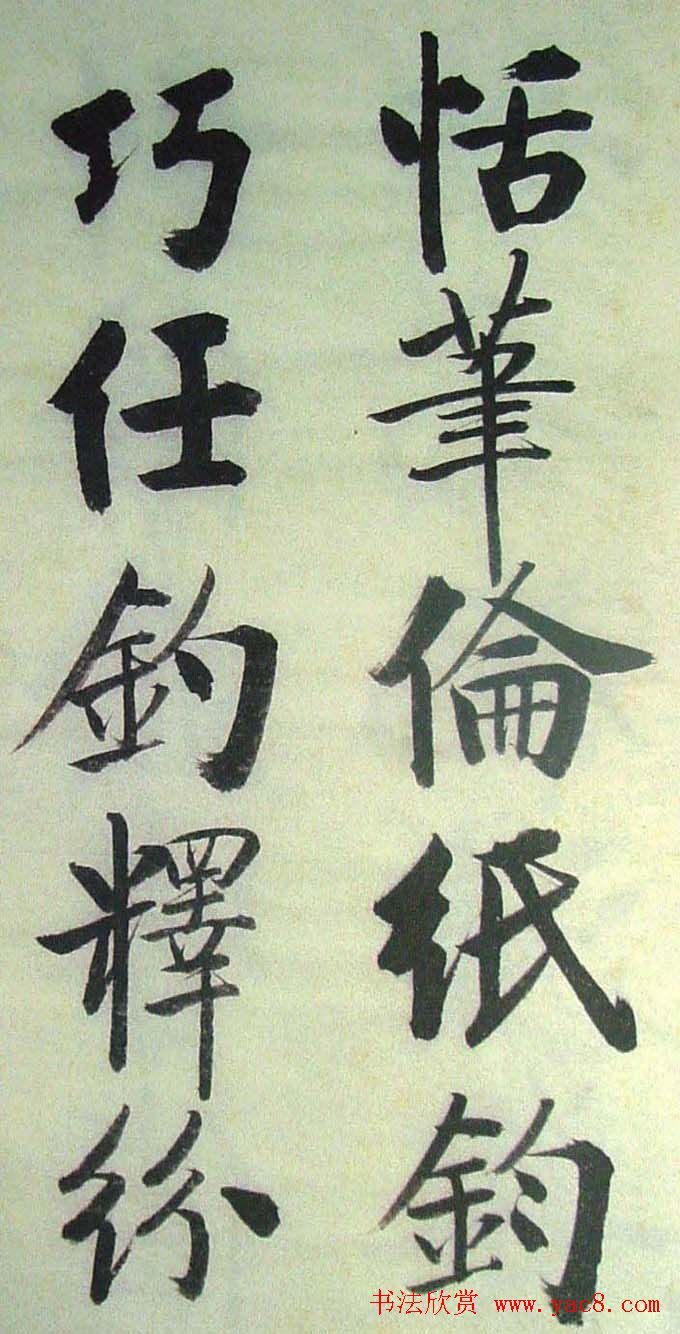 恬筆倫紙鈞
巧任釣釋紛
书法欣赏 www.yac8.com